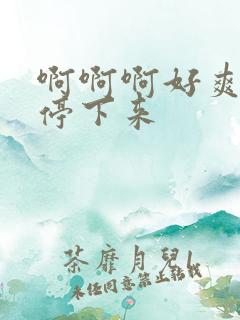 啊啊啊好爽
停下来
荼靡月兒l
未经同意禁止转载